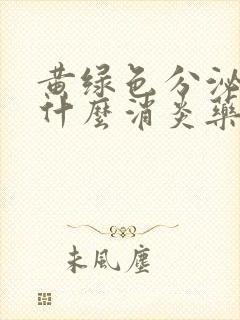 黄绿色分泌
什麼消炎藥
未風塵